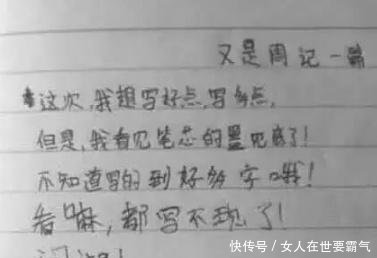 又是周记一篇
这次,我想写好点,写多点,
但是,我看见笔芯的墨见底了!
不知道写的到好多字哦!
看嘛,都写不现了!
快传号/女人在世要霸气